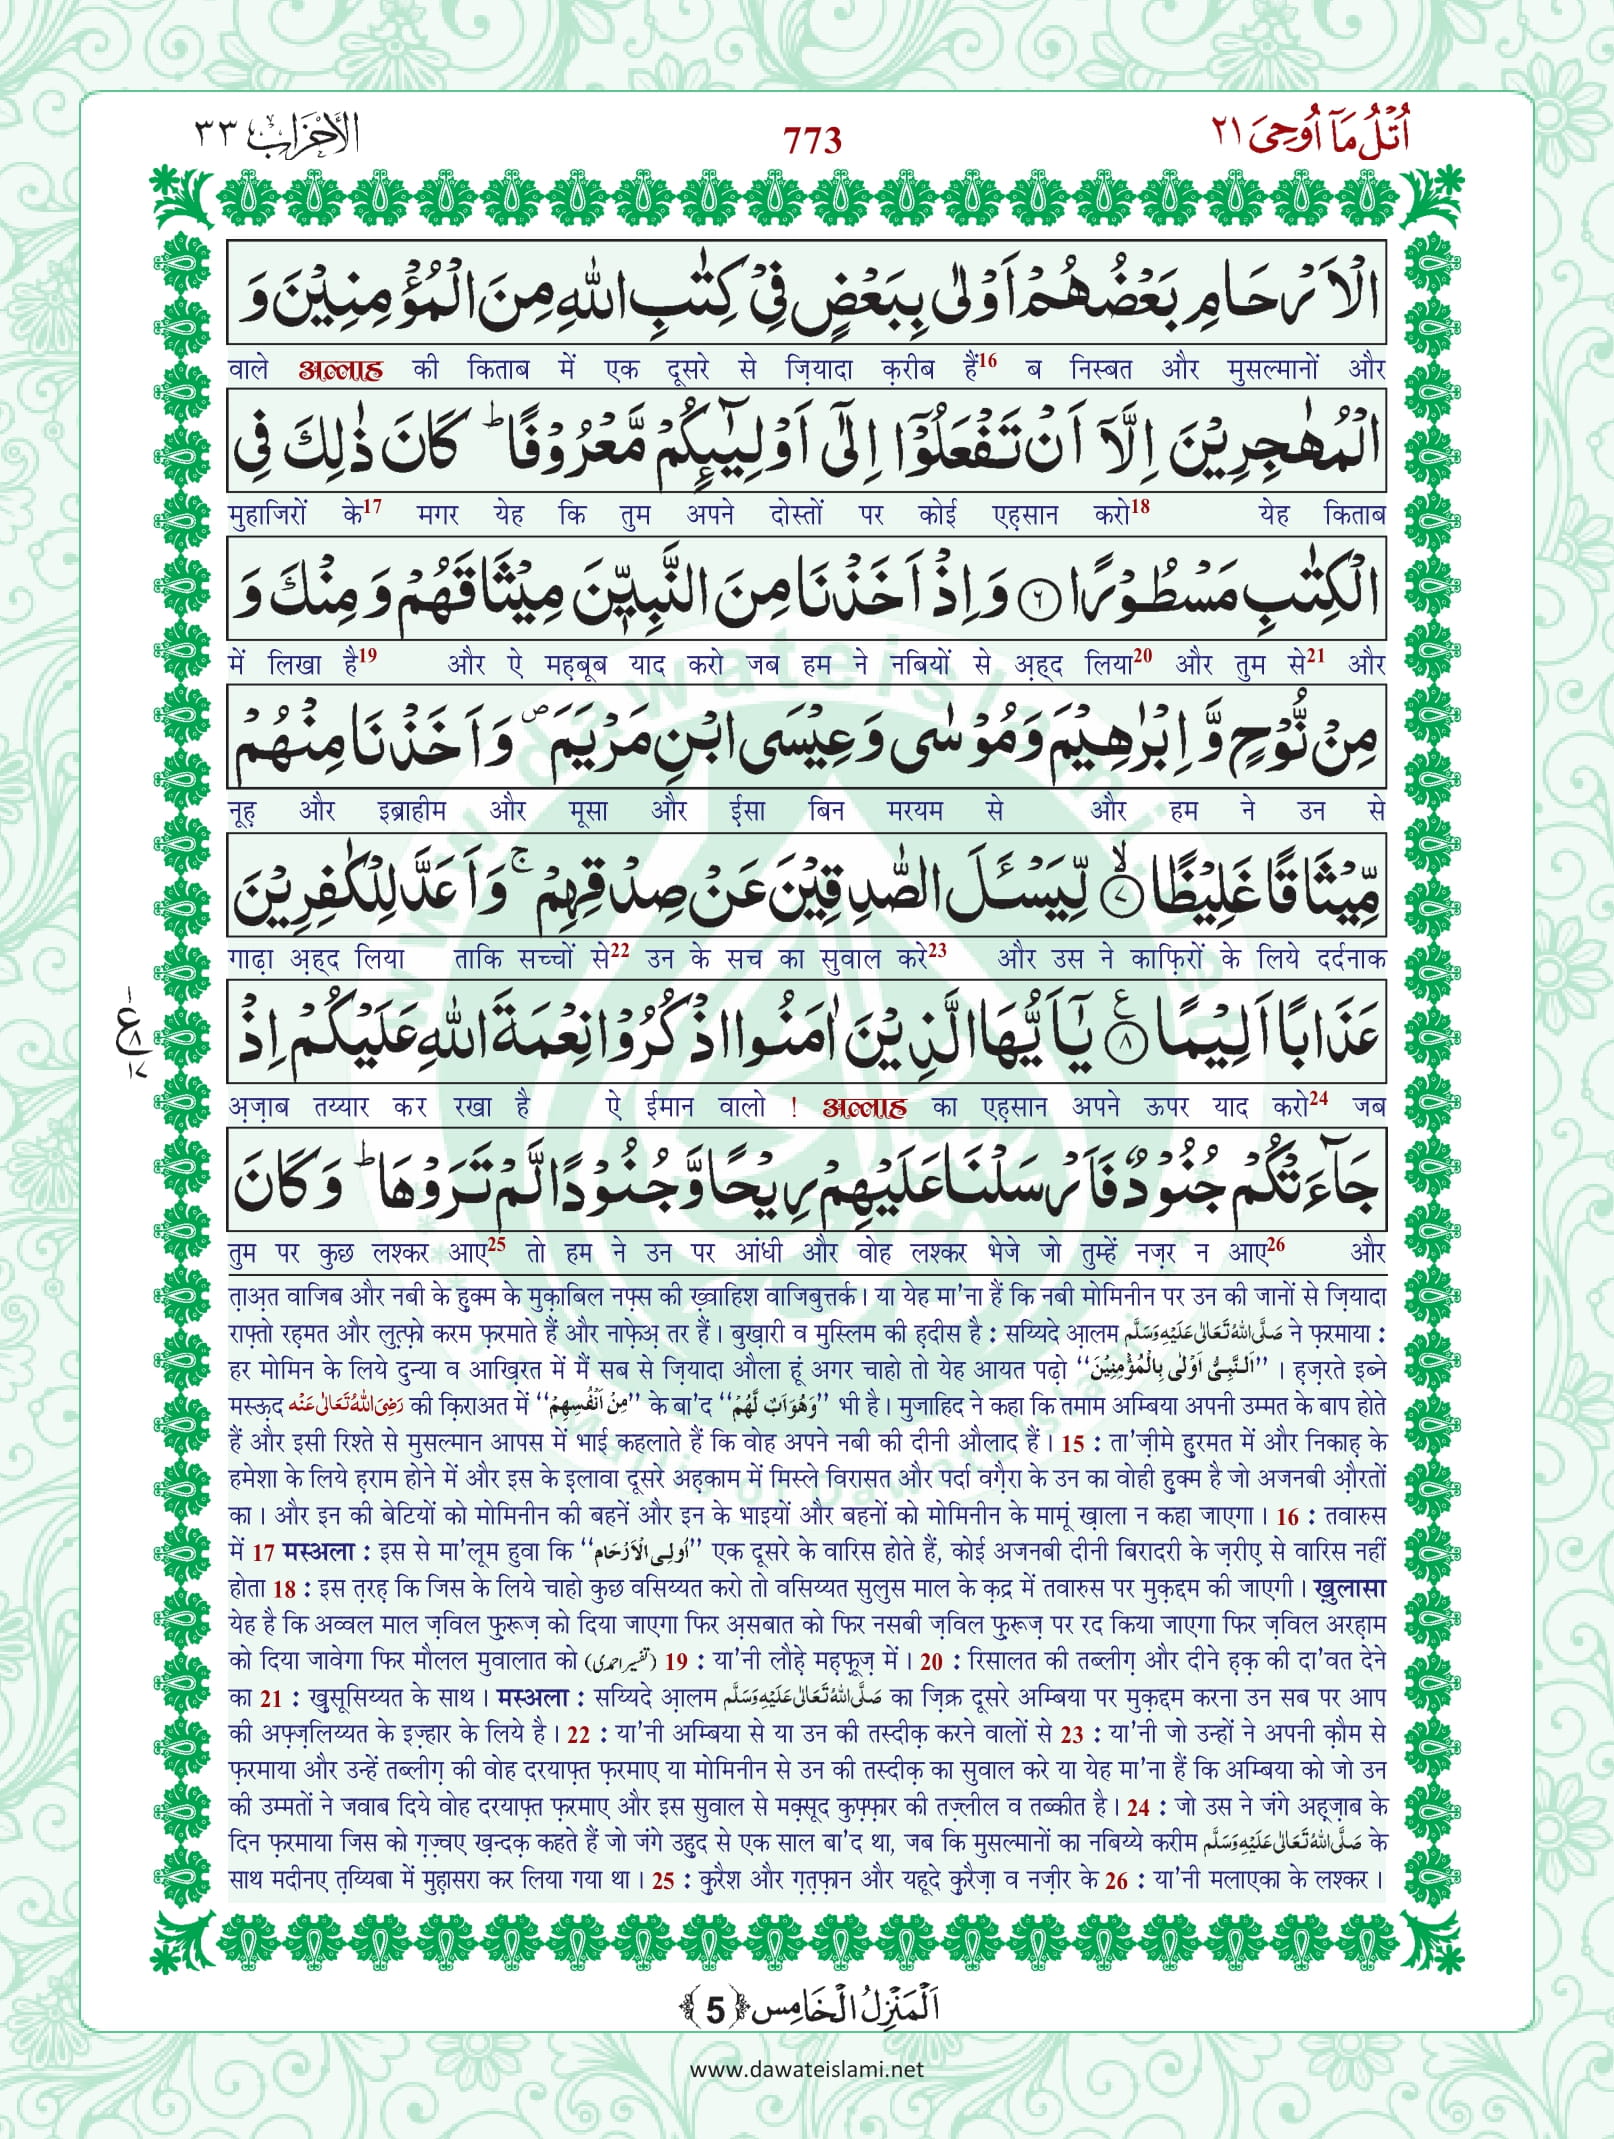 اُتْلُ مَاۤ اُوْحِیَ ۲۱
773
الْاَحْزَاب ۳۳
الْاَرْحَامِ بَعْضُهُمْ اَوْلٰى بِبَعْضٍ فِیْ كِتٰبِ اللّٰهِ مِنَ الْمُؤْمِنِیْنَ وَ
वाले अल्लाह की किताब में एक दूसरे से ज़ियादा क़रीब हैं16 ब निस्बत और मुसल्मानों और
الْمُهٰجِرِیْنَ اِلَّاۤ اَنْ تَفْعَلُوْۤا اِلٰۤى اَوْلِیٰٓىٕكُمْ مَّعْرُوْفًاؕ كَانَ ذٰلِكَ فِی
मुहाजिरों के17 मगर येह कि तुम अपने दोस्तों पर कोई एह़सान करो18 येह किताब
الْكِتٰبِ مَسْطُوْرًا ﴿۶﴾ وَ اِذْ اَخَذْنَا مِنَ النَّبِیّٖنَ مِیْثَاقَهُمْ وَ مِنْكَ وَ
में लिखा है19 और ऐ महबूब याद करो जब हम ने नबियों से अ़ह्द लिया20 और तुम से21 और
مِنْ نُّوْحٍ وَّ اِبْرٰهِیْمَ وَ مُوْسٰى وَ عِیْسَى ابْنِ مَرْیَمَ۪ وَ اَخَذْنَا مِنْهُمْ
नूह़ और इब्राहीम और मूसा और ई़सा बिन मरयम से और हम ने उन से
مِّیْثَاقًا غَلِیْظًاۙ ﴿۷﴾ لِّیَسْــٴَـلَ الصّٰدِقِیْنَ عَنْ صِدْقِهِمْۚ وَ اَعَدَّ لِلْكٰفِرِیْنَ
गाढ़ा अ़ह्द लिया ताकि सच्चों से22 उन के सच का सुवाल करे23 और उस ने काफ़िरों के लिये दर्दनाक
عَذَابًا اَلِیْمًا۠ ﴿۸﴾ یٰۤاَیُّهَا الَّذِیْنَ اٰمَنُوا اذْكُرُوْا نِعْمَةَ اللّٰهِ عَلَیْكُمْ اِذْ
ع
अ़ज़ाब तय्यार कर रखा है ऐ ईमान वालो ! अल्लाह का एह़सान अपने ऊपर याद करो24 जब
جَآءَتْكُمْ جُنُوْدٌ فَاَرْسَلْنَا عَلَیْهِمْ رِیْحًا وَّ جُنُوْدًا لَّمْ تَرَوْهَاؕ وَ كَانَ
तुम पर कुछ लश्कर आए25 तो हम ने उन पर आंधी और वोह लश्कर भेजे जो तुम्हें नज़र न आए26 और
त़ाअ़त वाजिब और नबी के हु़क्म के मुक़ाबिल नफ़्स की ख़्वाहिश वाजिबुत्तर्क । या येह मा'ना हैं कि नबी मोमिनीन पर उन की जानों से ज़ियादा
राफ़्तो रह़मत और लुत़्फ़ो करम फ़रमाते हैं और नाफ़ेअ़ तर हैं । बुख़ारी व मुस्लिम की ह़दीस है : सय्यिदे आ़लम صَلَّى اللهُ تَعَالٰى عَلَیْهِ وَسَلَّم ने फ़रमाया :
हर मोमिन के लिये दुन्या व आख़िरत में मैं सब से ज़ियादा औला हूं अगर चाहो तो येह आयत पढ़ो ‘‘اَلنَّبِیُّ اَوْلٰى بِالْمُؤْمِنِیْنَ’’ । ह़ज़रते इब्ने
मस्ऊ़द رَضِیَ اللهُ تَعَالٰى عَنْه की क़िराअत में ‘‘مِنْ اَنْفُسِهِمْ’’ के बा'द ‘‘وَهُوَ اَبٌ لَّهُمْ’’ भी है । मुजाहिद ने कहा कि तमाम अम्बिया अपनी उम्मत के बाप होते
हैं और इसी रिश्ते से मुसल्मान आपस में भाई कहलाते हैं कि वोह अपने नबी की दीनी औलाद हैं । 15 : ता'ज़ीमे हु़रमत में और निकाह़ के
हमेशा के लिये ह़राम होने में और इस के इ़लावा दूसरे अह़काम में मिस्ले विरासत और पर्दा वग़ैरा के उन का वोही हु़क्म है जो अजनबी औ़रतों
का । और इन की बेटियों को मोमिनीन की बहनें और इन के भाइयों और बहनों को मोमिनीन के मामूं ख़ाला न कहा जाएगा । 16 : तवारुस
में 17 मस्अला : इस से मा'लूम हुवा कि ‘‘اُولِی الْاَرْحَام’’ एक दूसरे के वारिस होते हैं, कोई अजनबी दीनी बिरादरी के ज़रीए़ से वारिस नहीं
होता 18 : इस त़रह़ कि जिस के लिये चाहो कुछ वसिय्यत करो तो वसिय्यत सुलुस माल के क़द्र में तवारुस पर मुक़द्दम की जाएगी । ख़ुलासा
येह है कि अव्वल माल ज़विल फ़ुरूज़ को दिया जाएगा फिर अ़सबात को फिर नसबी ज़विल फ़ुरूज़ पर रद किया जाएगा फिर ज़विल अरह़ाम
को दिया जावेगा फिर मौलल मुवालात को (تفسیر احمدی) 19 : या'नी लौह़े मह़फ़ूज़ में । 20 : रिसालत की तब्लीग़ और दीने ह़क़ की दा'वत देने
का 21 : ख़ुसूसिय्यत के साथ । मस्अला : सय्यिदे आ़लम صَلَّى اللهُ تَعَالٰى عَلَیْهِ وَسَلَّم का ज़िक्र दूसरे अम्बिया पर मुक़द्दम करना उन सब पर आप
की अफ़्ज़लिय्यत के इज़्हार के लिये है । 22 : या'नी अम्बिया से या उन की तस्दीक़ करने वालों से 23 : या'नी जो उन्हों ने अपनी क़ौम से
फ़रमाया और उन्हें तब्लीग़ की वोह दरयाफ़्त फ़रमाए या मोमिनीन से उन की तस्दीक़ का सुवाल करे या येह मा'ना हैं कि अम्बिया को जो उन
की उम्मतों ने जवाब दिये वोह दरयाफ़्त फ़रमाए और इस सुवाल से मक़्सूद कुफ़्फ़ार की तज़्लील व तब्कीत है । 24 : जो उस ने जंगे अह़ज़ाब के
दिन फ़रमाया जिस को ग़ज़्वए ख़न्दक़ कहते हैं जो जंगे उहु़द से एक साल बा'द था, जब कि मुसल्मानों का नबिय्ये करीम صَلَّى اللهُ تَعَالٰى عَلَیْهِ وَسَلَّم के
साथ मदीनए त़य्यिबा में मुह़ासरा कर लिया गया था । 25 : क़ुरैश और ग़त़फ़ान और यहूदे क़ुरैज़ा व नज़ीर के 26 : या'नी मलाएका के लश्कर ।
اَلْمَنْزِلُ الْخَامِس ﴿5﴾
www.dawateislami.net